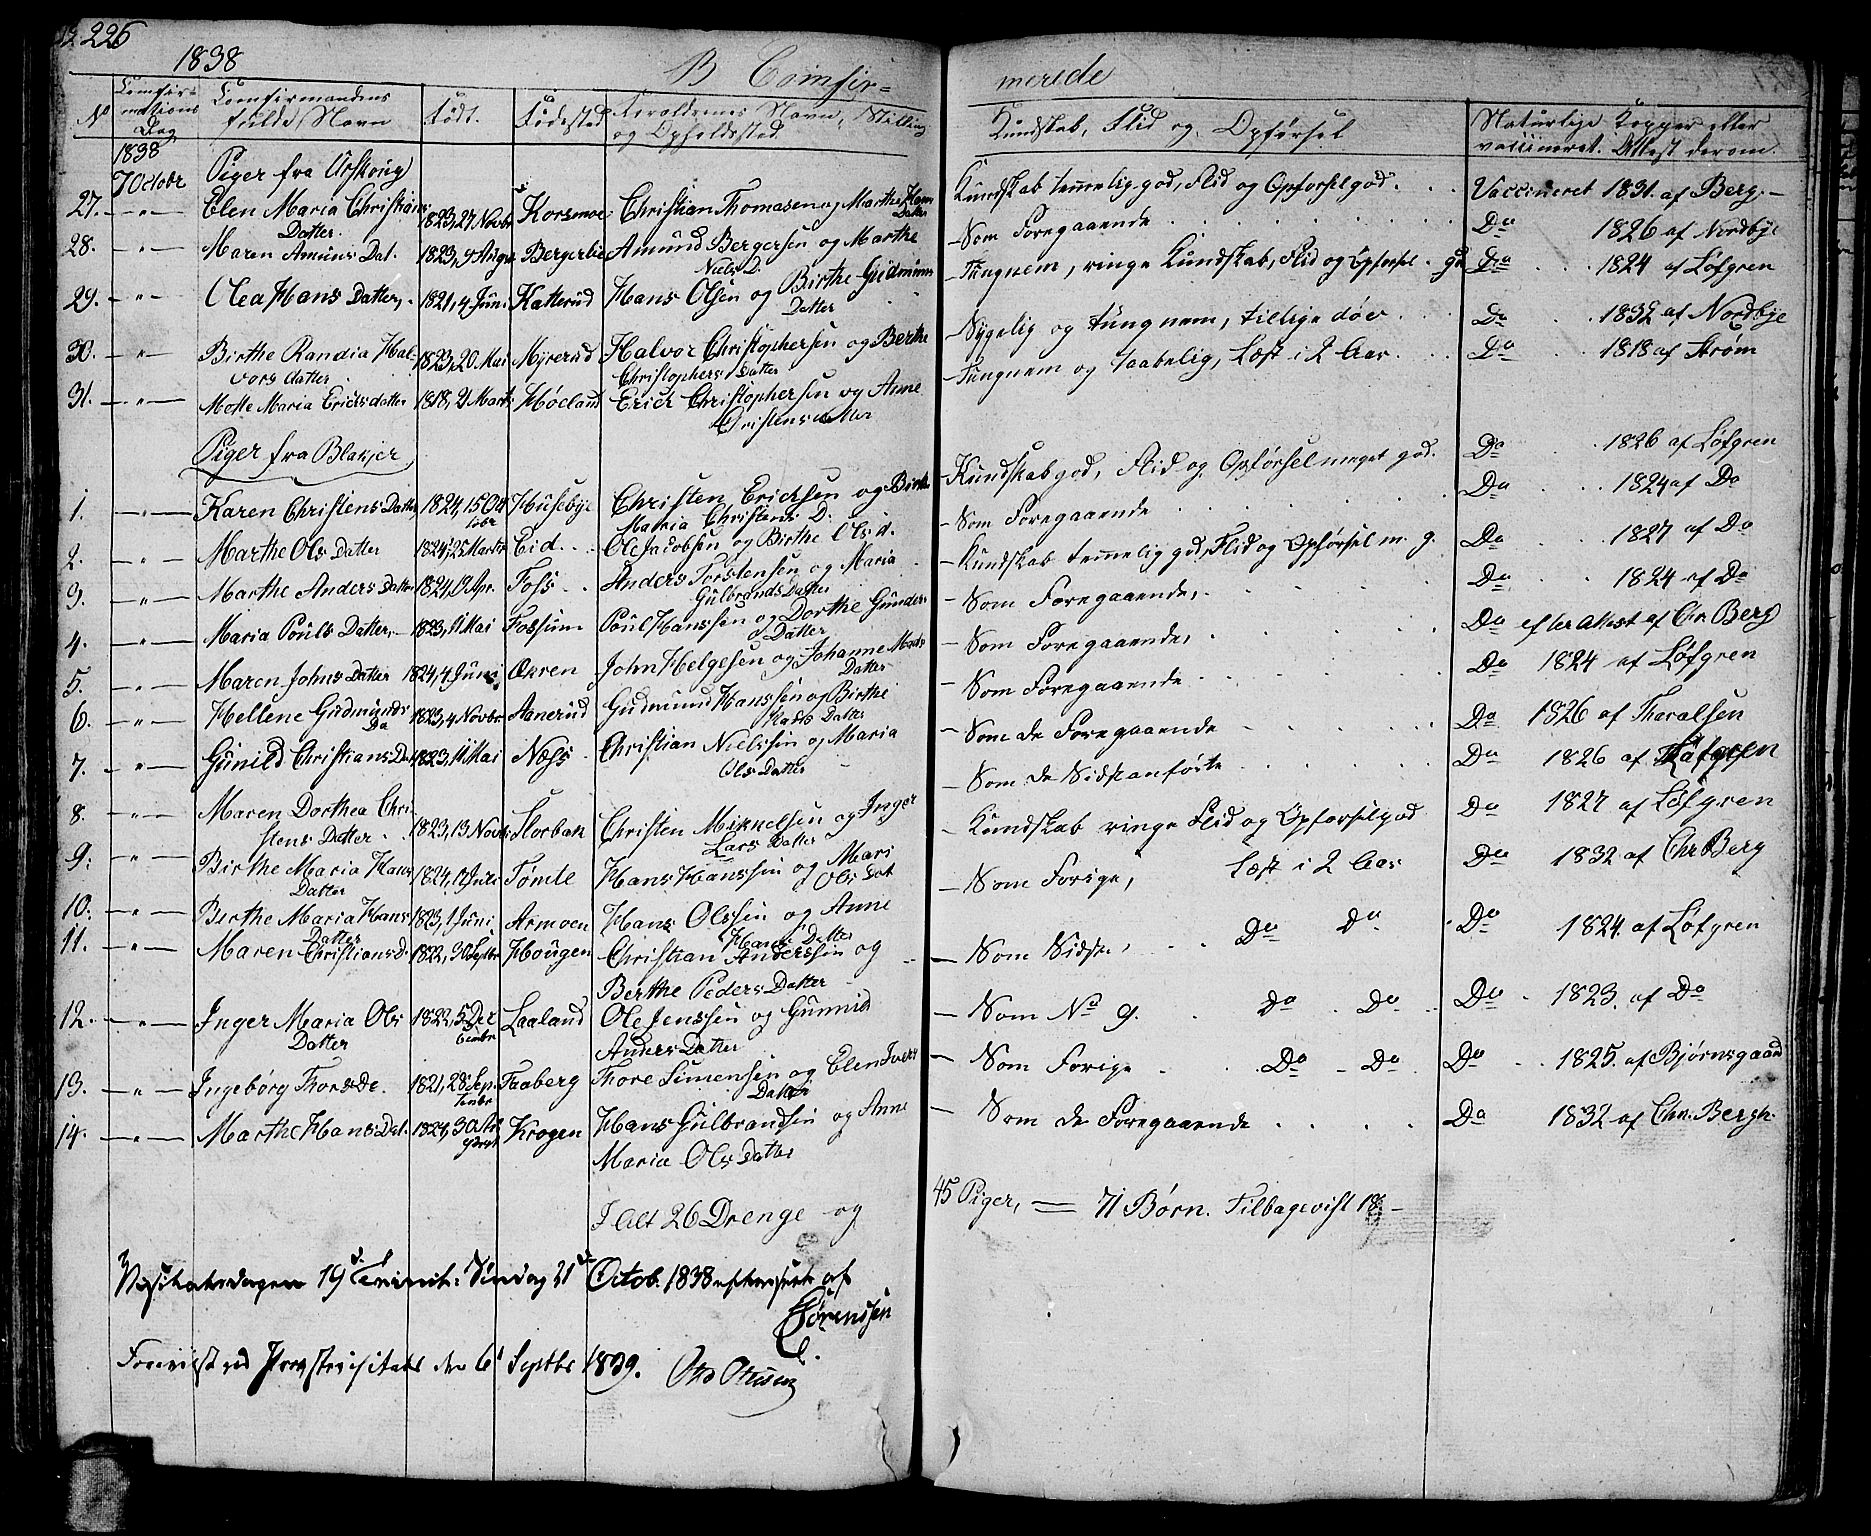 226
1838
B Comfir=
merede
No
Comfir=
mations
Dag
Comfirmandens
fulde Navn
Födt.
Födested
Foreldrenes Navn, Stilling
og Opholdssted
Kundskab, Flid og Opførsel
Naturlige Kopper eller
vaccineret. Attest derom.
1838
7 Octobr
Piger fra Urskoug
27. —„— Elen Maria Christians Datter. 1823, 27 Novbr Korsmoe Christian Thomasen og Marthe Hans Datter Kundskab temmelig god, Flid og Opførsel god. Vaccineret 1831. af Berg.
28. —„— Maren Amuns Dat. 1823, 9 Augu Bergerlie Amund Bergersen og Marthe Niels D. Som Foregaaende Do 1826 af Nordbye
29. —„— Olea Hans Datter, 1821, 4 Juni Katterud Hans Olsen og Birthe Gudmunn Datter Tungnem, ringe Kundskab, Flid og Opførsel gd Do 1824 af Løfgren
30. —„— Birthe Randia Hal-vors datter 1823, 20 Mai Myrerud Halvor Christophersen og Berthe Christophers Datter Sygelig og tungnem, tillige døv Do 1832 af Nordbye
31. —„— Mette Maria Ericksdatter 1818, 21 Marts Høeland Erick Christophersen og Anne Christensdatter Tungnem og taabelig, Læst i 2 Aar. Do 1818 af Strøm
Piger fra Blakjer
1. —„— Karen Christens Datter 1824, 15 Octobr Husebye Christen Ericksen og Birthe Maria Christens D. Kundskab god, Flid og Opførsel meget god. Do 1826 af Løfgren
2. —„— Marthe Ols Datter 1824, 25 Marts Eid Ole Jacobsen og Birthe Ols d. Som Foregaaende Do 1824 af Do
3. —„— Marthe Anders Datter 1824, 19 Apr. Foss Anders Torstensen og Maria Gulbrands Datter Kundskab temmelig god, Flid og Opførsel m. g. Do 1827 af Do
4. —„— Maria Pouls Datter, 1823, 11 Mai Fossum Poul Hanssen og Dorthe Gunders Datter Som Foregaaende, Do 1824 af Do
5. —„— Maren Johns Datter 1824, 4 Juni Økren John Helgesen og Johanne Mads Datter Som Foregaaende, Do efter Attest af Chr Berg
6. —„— Hellene Gudmunds Da 1823, 4 Novbr Aanerud Gudmund Hanssen og Birthe Mads Datter Som Foregaaende Do 1824 af Løfgren
7. —„— Gunild Christians Da 1823, 11 Mai Næss Christian Nielssen og Maria Ols Datter Som de Foregaaende Do 1826 af Thoralsen
8. —„— Maren Dorthea Chri-stens Datter 1823, 13 Novb Storban Christen Mikkelsen og Inger Lars Datter Som de Sidstanførte Do 1826 af Løfgren
9. —„— Birthe Maria Hans Datter 1824, 17 Juli Tomte Hans Hanssen og Mari Ols Dat Kundskab ringe Flid og Opførsel god Do 1827 af Løfgren
10. —„— Berthe Maria Hans Datter 1823, 1 Juni Armoen Hans Olssen og Anne Hans Datter Som Forige, Læst i 2 Aar Do 1832 af Chr Berg
11. —„— Maren Christians d. 1822, 30 Septbr Hougen Christian Anderssen og Berthe Peders Datter Som Sidste, Do Do Do 1824. af Løfgren
12. —„— Inger Maria Ols Datter 1822, 5 Decembr Laaland Ole Jenssen og Gunnild Anders Datter Som No 9. Do Do Do 1823. af Do
13. —„— Ingeborg Thorsd. 1821, 28 September Faaberg Thore Simensen og Elen Ivers Datter Som Forige Do Do Do 1825. af Bjørnsgaard
14. —„— Marthe Hans Dat. 1824, 30 Krogen Hans Gulbrandsen og Anne Maria Ols Datter Som de Foregaaende Do 1832 af Chr. Bergh.
I Alt 26 Drenge og
45 Piger, — 71 Børn. Tilbagevist 18
Visitatsdagen 19de Trinit: Søndag 21de Octob. 1838 efterseet af
Sørenssen
Foreviist ved Provstevisitats den 6te Septbr 1839.